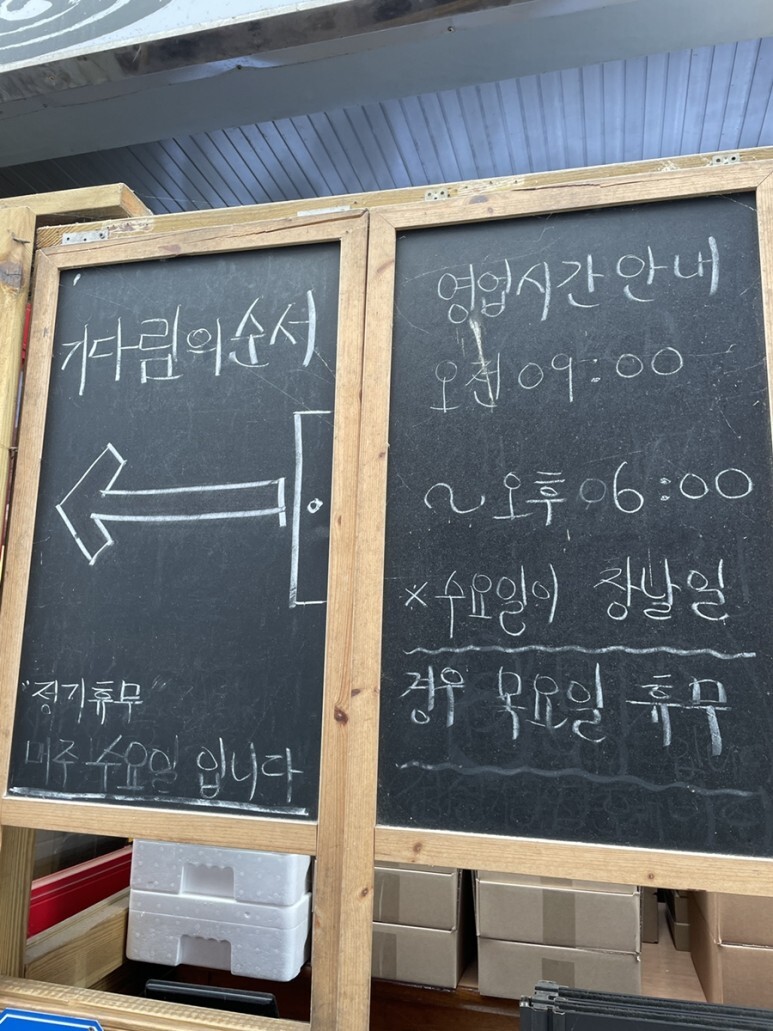 기다림의순서
"정기휴무"
매주 수요일 입니다
영업시간안내
오전 09:00
~ 오후 06:00
※수요일이 장날일
경우 목요일 휴무